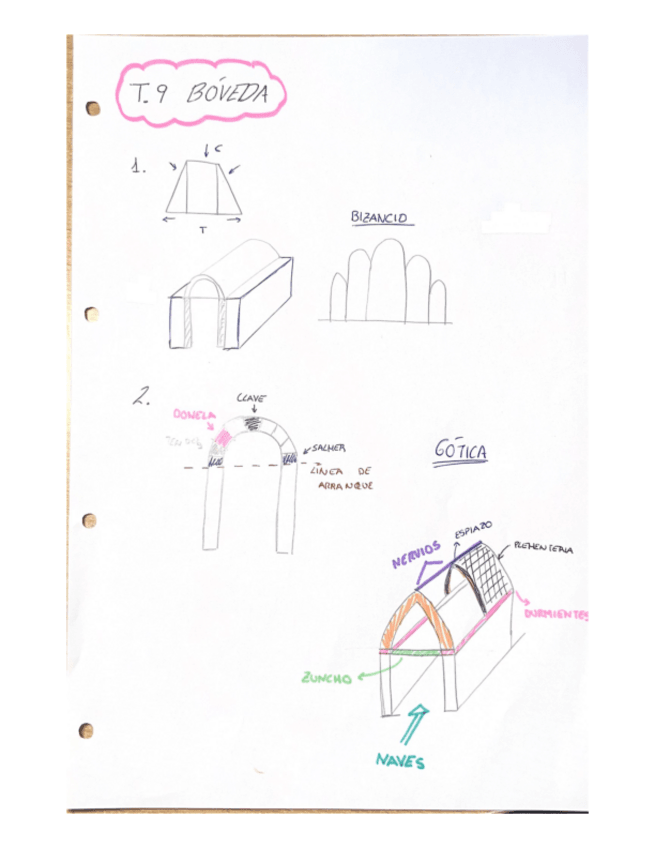 T.9 BÓVEDA
1.
C
T
BIZANCIO
2.
CLAVE
DOVELA
SALMER
LÍNEA DE
ARRANQUE
GÓTICA
ESPIAZO
NERVIOS
PLEMENTERIA
DURMIENTES
ZUNCHO
NAVES